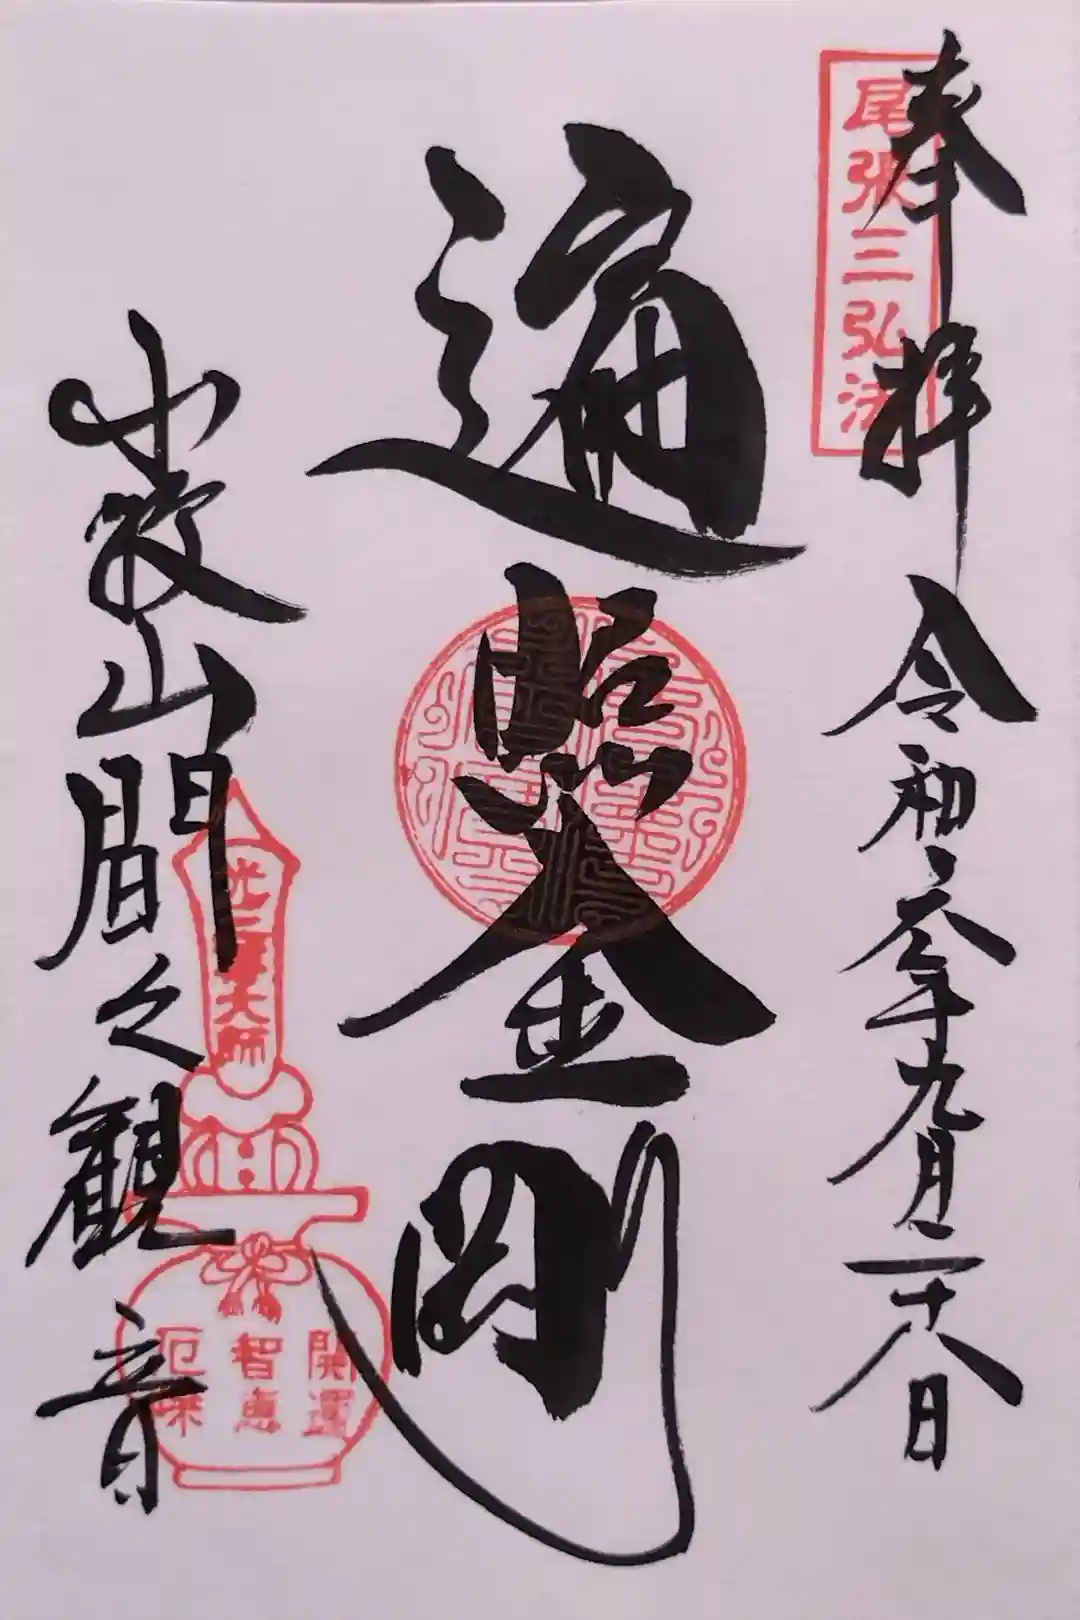 奉拝 令和六年九月二十八日
尾張三弘法
遍照金剛
小牧山間々観音
大師
開運
智恵
厄除